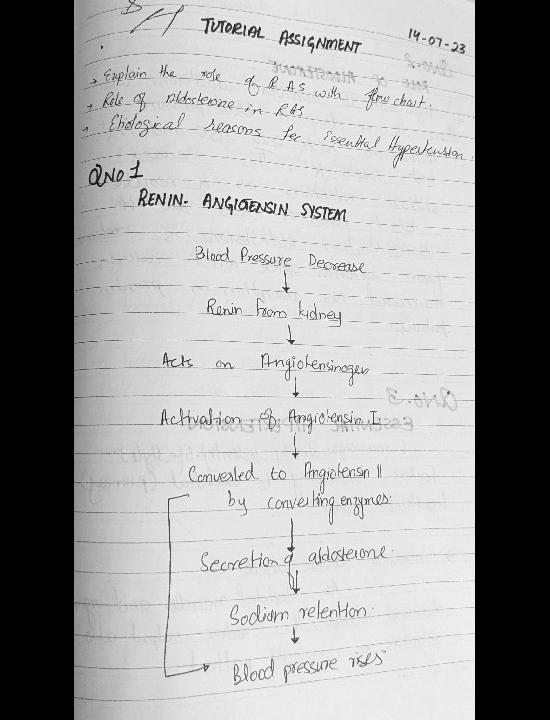 TUTORIAL ASSIGNMENT
14-07-23
→ Explain the role of RAS with flow chart.
→ Role of Aldosterone in RAS
→ Etiological reasons for Essential Hypertension.
QNO 1
RENIN- ANGIOTENSIN SYSTEM
Blood Pressure Decrease
↓
Renin from kidney
↓
Acts on Angiotensinogen
↓
Activation of Angiotensin I
↓
Converted to Angiotensin II
by converting enzymes.
↓
Secretion of aldosterone.
↓
Sodium retention.
↓
Blood pressure rises